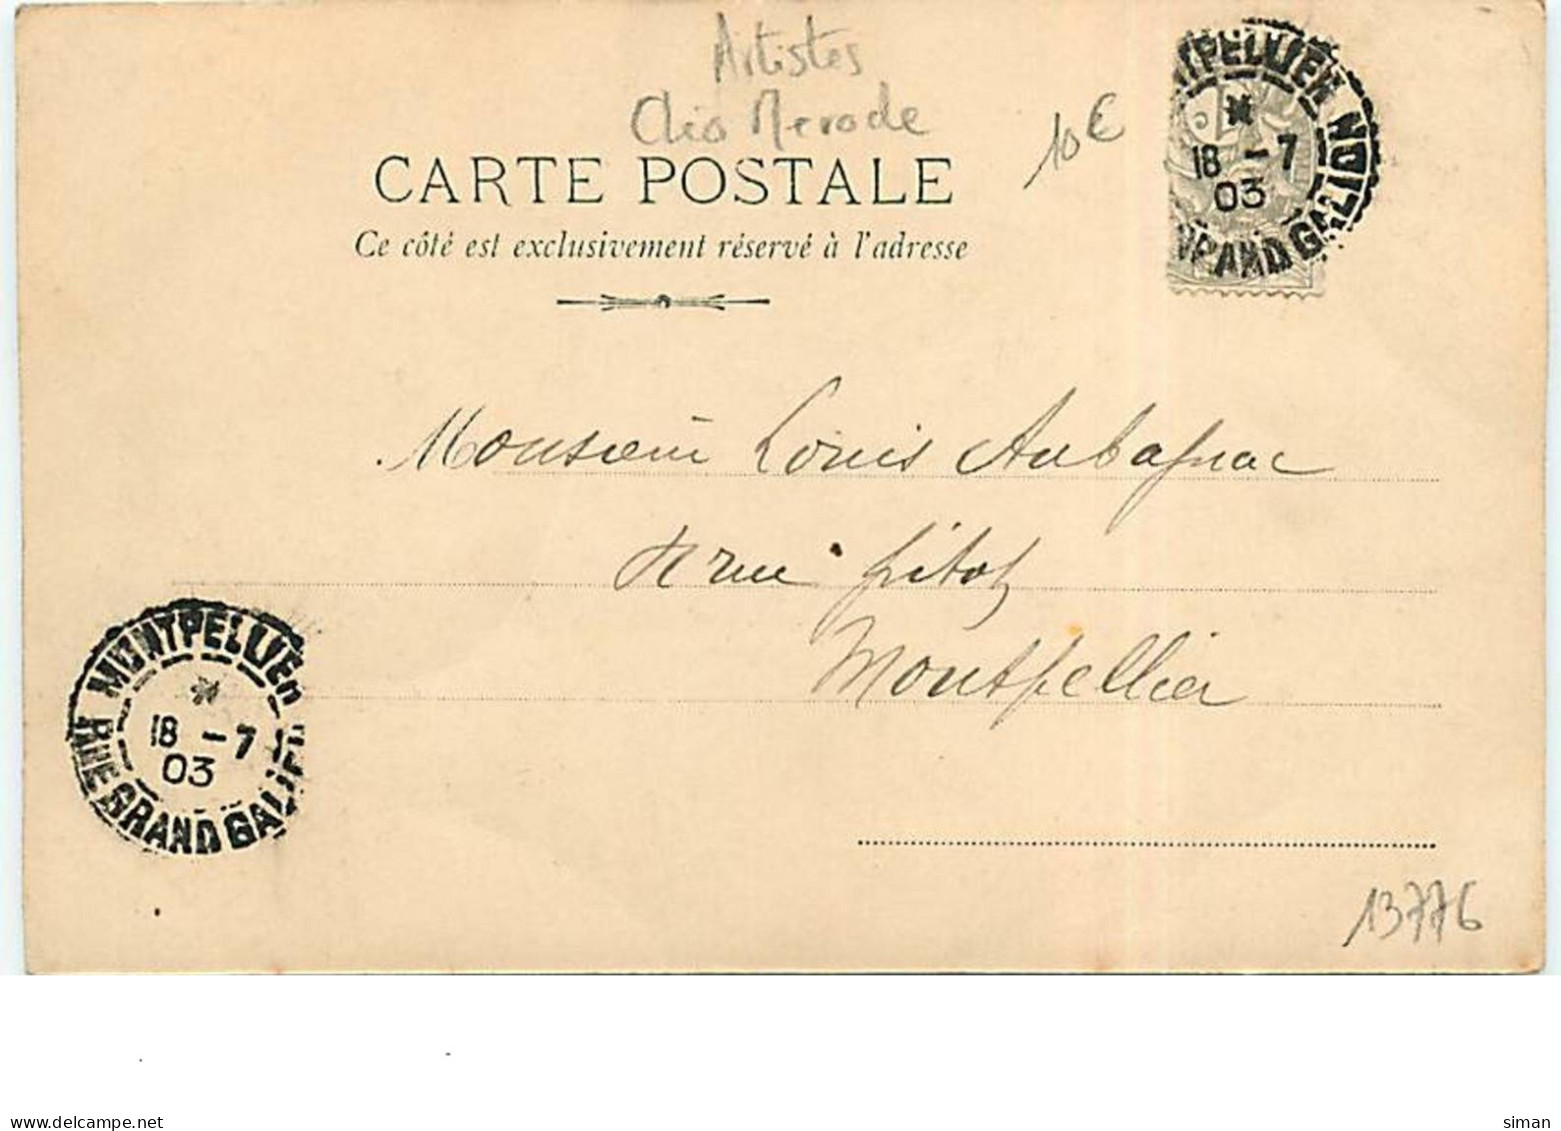 Artistes
Clio Merode
10 €
CARTE POSTALE
Ce côté est exclusivement réservé à l'adresse
MONTPELLIER
18 -7
03
GRAND GALION
Monsieur Louis Aubagnac
rue Pitot
Montpellier
MONTPELLIER
18 -7
03
RUE GRAND GAL
13776
www.delcampe.net
siman